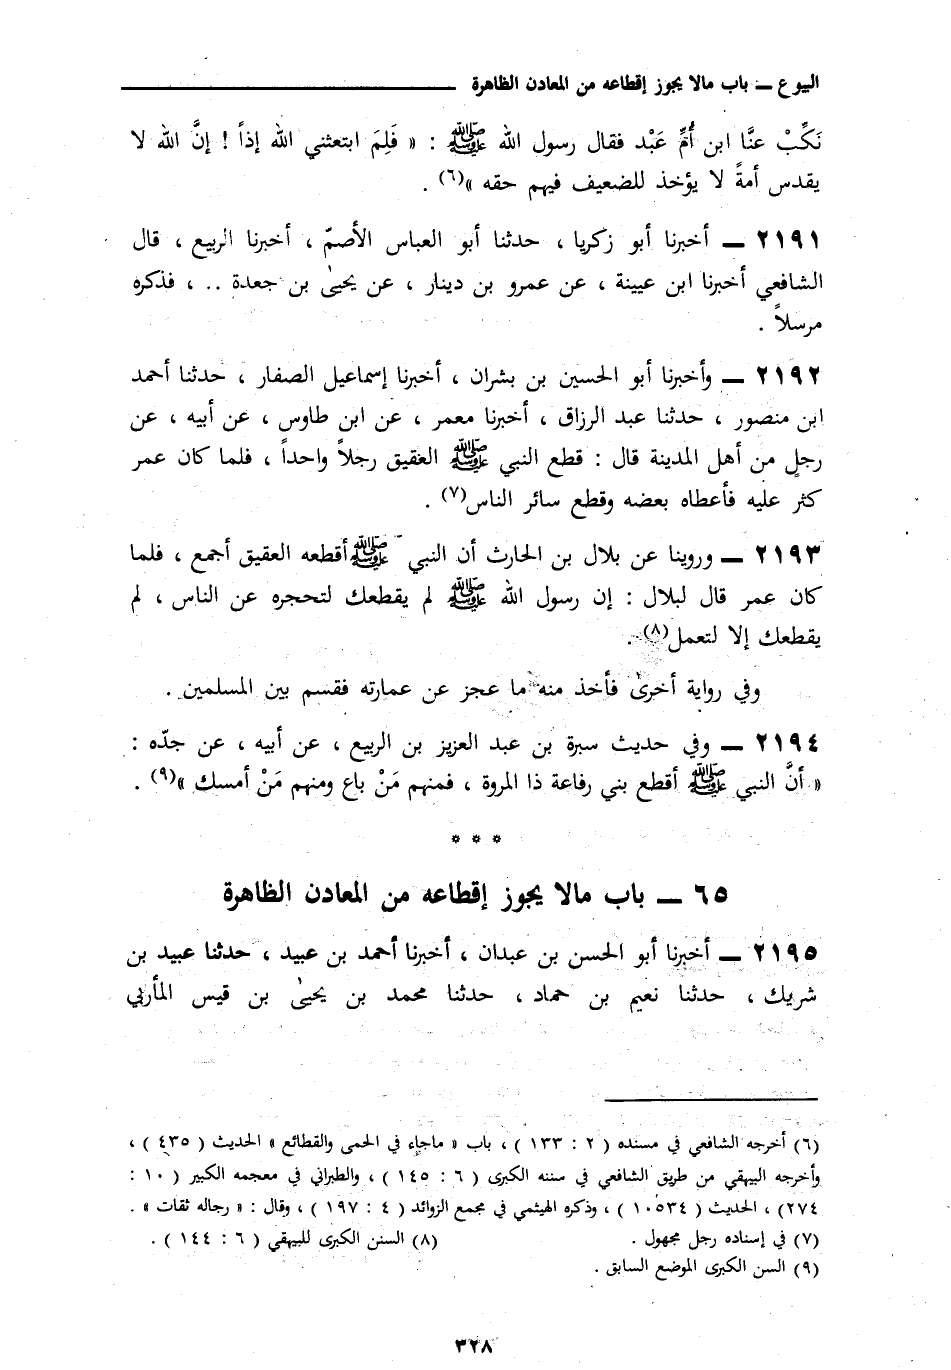 البيوع ـــ باب مالا يجوز إقطاعه من المعادن الظاهرة
نَكِّبْ عنَّا ابن أُمِّ عَبْد فقال رسول الله ﷺ : « فَلِمَ ابتعثني الله إذاً ! إنَّ الله لا
يقدس أمةً لا يؤخذ للضعيف فيهم حقه »(٦) .
٢١٩١ ـــ أخبرنا أبو زكريا ، حدثنا أبو العباس الأصمّ ، أخبرنا الربيع ، قال
الشافعي أخبرنا ابن عيينة ، عن عمرو بن دينار ، عن يحيىٰ بن جعدة .. ، فذكره
مرسلاً .
٢١٩٢ ـــ وأخبرنا أبو الحسين بن بشران ، أخبرنا إسماعيل الصفار ، حدثنا أحمد
ابن منصور ، حدثنا عبد الرزاق ، أخبرنا معمر ، عن ابن طاوس ، عن أبيه ، عن
رجلٍ من أهل المدينة قال : قطع النبي ﷺ العقيق رجلاً واحداً ، فلما كان عمر
كثر عليه فأعطاه بعضه وقطع سائر الناس(٧) .
٢١٩٣ ـــ وروينا عن بلال بن الحارث أن النبي ﷺ أقطعه العقيق أجمع ، فلما
كان عمر قال لبلال : إن رسول الله ﷺ لم يقطعك لتحجره عن الناس ، لم
يقطعك إلا لتعمل(٨) .
وفي رواية أخرىٰ فأخذ منه ما عجز عن عمارته فقسم بين المسلمين .
٢١٩٤ ـــ وفي حديث سبرة بن عبد العزيز بن الربيع ، عن أبيه ، عن جدّه :
« أنَّ النبي ﷺ أقطع بني رفاعة ذا المروة ، فمنهم مَنْ باع ومنهم مَنْ أمسك »(٩) .
* * *
٦٥ ـــ باب مالا يجوز إقطاعه من المعادن الظاهرة
٢١٩٥ ـــ أخبرنا أبو الحسن بن عبدان ، أخبرنا أحمد بن عبيد ، حدثنا عبيد بن
شريك ، حدثنا نعيم بن حماد ، حدثنا محمد بن يحيىٰ بن قيس المأربي
(٦) أخرجه الشافعي في مسنده ( ٢ : ١٣٣ ) ، باب « ماجاء في الحمى والقطائع » الحديث ( ٤٣٥ ) ،
وأخرجه البيهقي من طريق الشافعي في سننه الكبرى ( ٦ : ١٤٥ ) ، والطبراني في معجمه الكبير ( ١٠ :
٢٧٤) ، الحديث ( ١٠٥٣٤ ) ، وذكره الهيثمي في مجمع الزوائد ( ٤ : ١٩٧ ) ، وقال : « رجاله ثقات » .
(٧) في إسناده رجل مجهول . (٨) السنن الكبرى للبيهقي ( ٦ : ١٤٤ ) .
(٩) السن الكبرى الموضع السابق .
٣٢٨